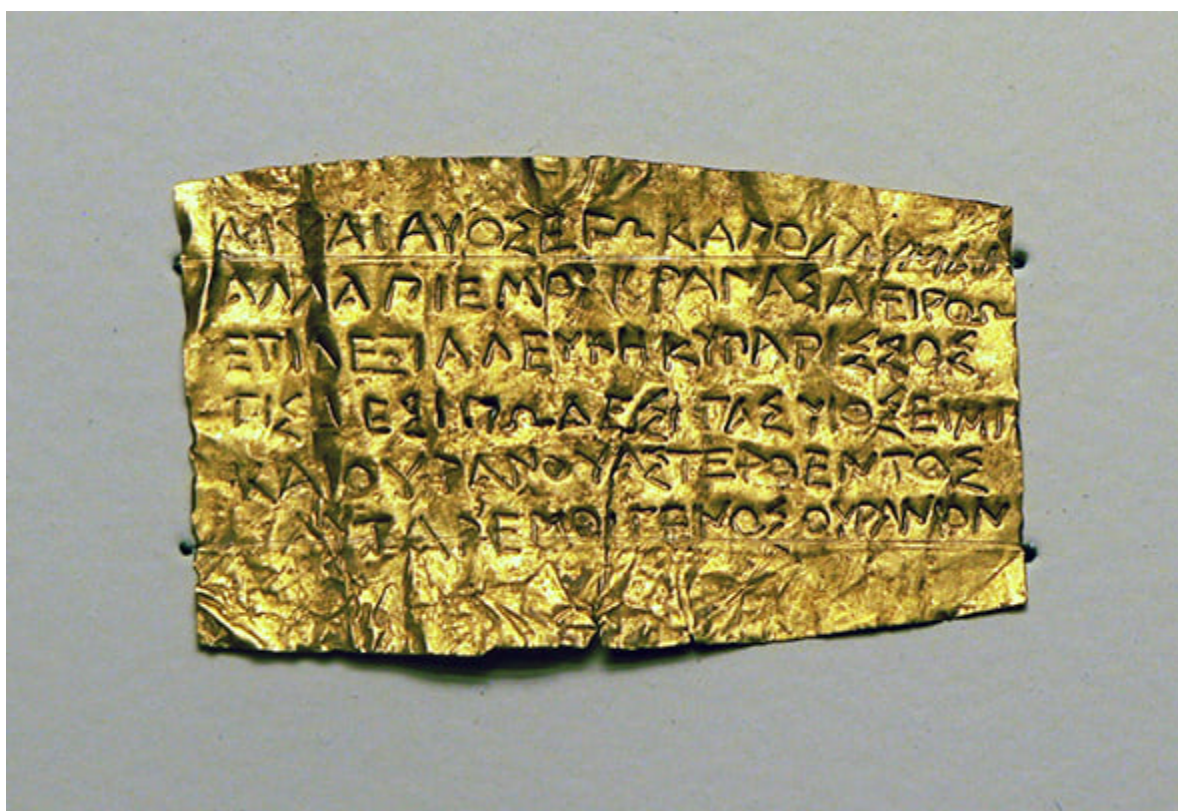 ΔΙΨΑΙΑΥΟΣΕΓΩΚΑΠΟΛΛΥΜΑΙ
ΑΛΛΑΠΙΕΜΟΥΚΡΑΝΑΣΑΙΕΙΡΩ
ΕΠΙΔΕΞΙΑΛΕΥΚΗΚΥΠΑΡΙΣΣΟΣ
ΤΙΣΔΕΣΙΠΩΔΕΣΙΓΑΣΥΙΟΣΕΙΜΙ
ΚΑΙΟΥΡΑΝΟΥΑΣΤΕΡΟΕΝΤΟΣ
ΑΥΤΑΡΕΜΟΙΓΕΝΟΣΟΥΡΑΝΙΟΝ